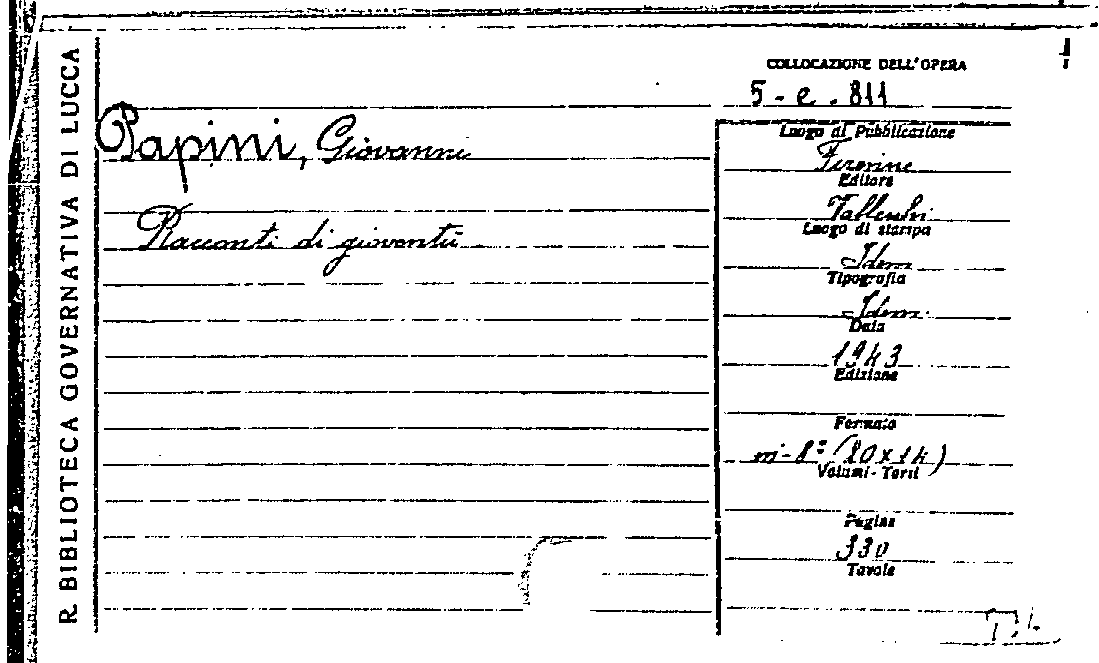 R. BIBLIOTECA GOVERNATIVA DI LUCCA
COLLOCAZIONE DELL'OPERA
5 - e . 811
Papini, Giovanni
Racconti di gioventù
Luogo di Pubblicazione
Firenze
Editore
Vallecchi
Luogo di stampa
Idem
Tipografia
Idem
Data
1943
Edizione
Formato
in-8° (20 x 14)
Volumi - Tomi
Pagine
330
Tavole